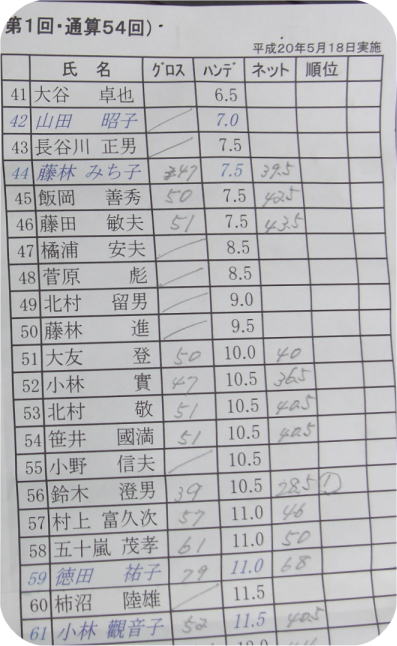 第1回・通算54回)
平成20年5月18日実施
氏 名 グロス ハンデ ネット 順位
41 大谷 卓也 6.5
42 山田 昭子 7.0
43 長谷川 正男 7.5
44 藤林 みち子 47 7.5 39.5
45 飯岡 善秀 50 7.5 42.5
46 藤田 敏夫 51 7.5 43.5
47 橘浦 安夫 8.5
48 菅原 彪 8.5
49 北村 留男 9.0
50 藤林 進 9.5
51 大友 登 50 10.0 40
52 小林 實 47 10.5 36.5
53 北村 敬 51 10.5 40.5
54 笹井 國満 51 10.5 40.5
55 小野 信夫 10.5
56 鈴木 澄男 39 10.5 28.5 ①
57 村上 富久次 57 11.0 46
58 五十嵐 茂孝 61 11.0 50
59 徳田 祐子 79 11.0 68
60 柿沼 陸雄 11.5
61 小林 觀音子 52 11.5 40.5